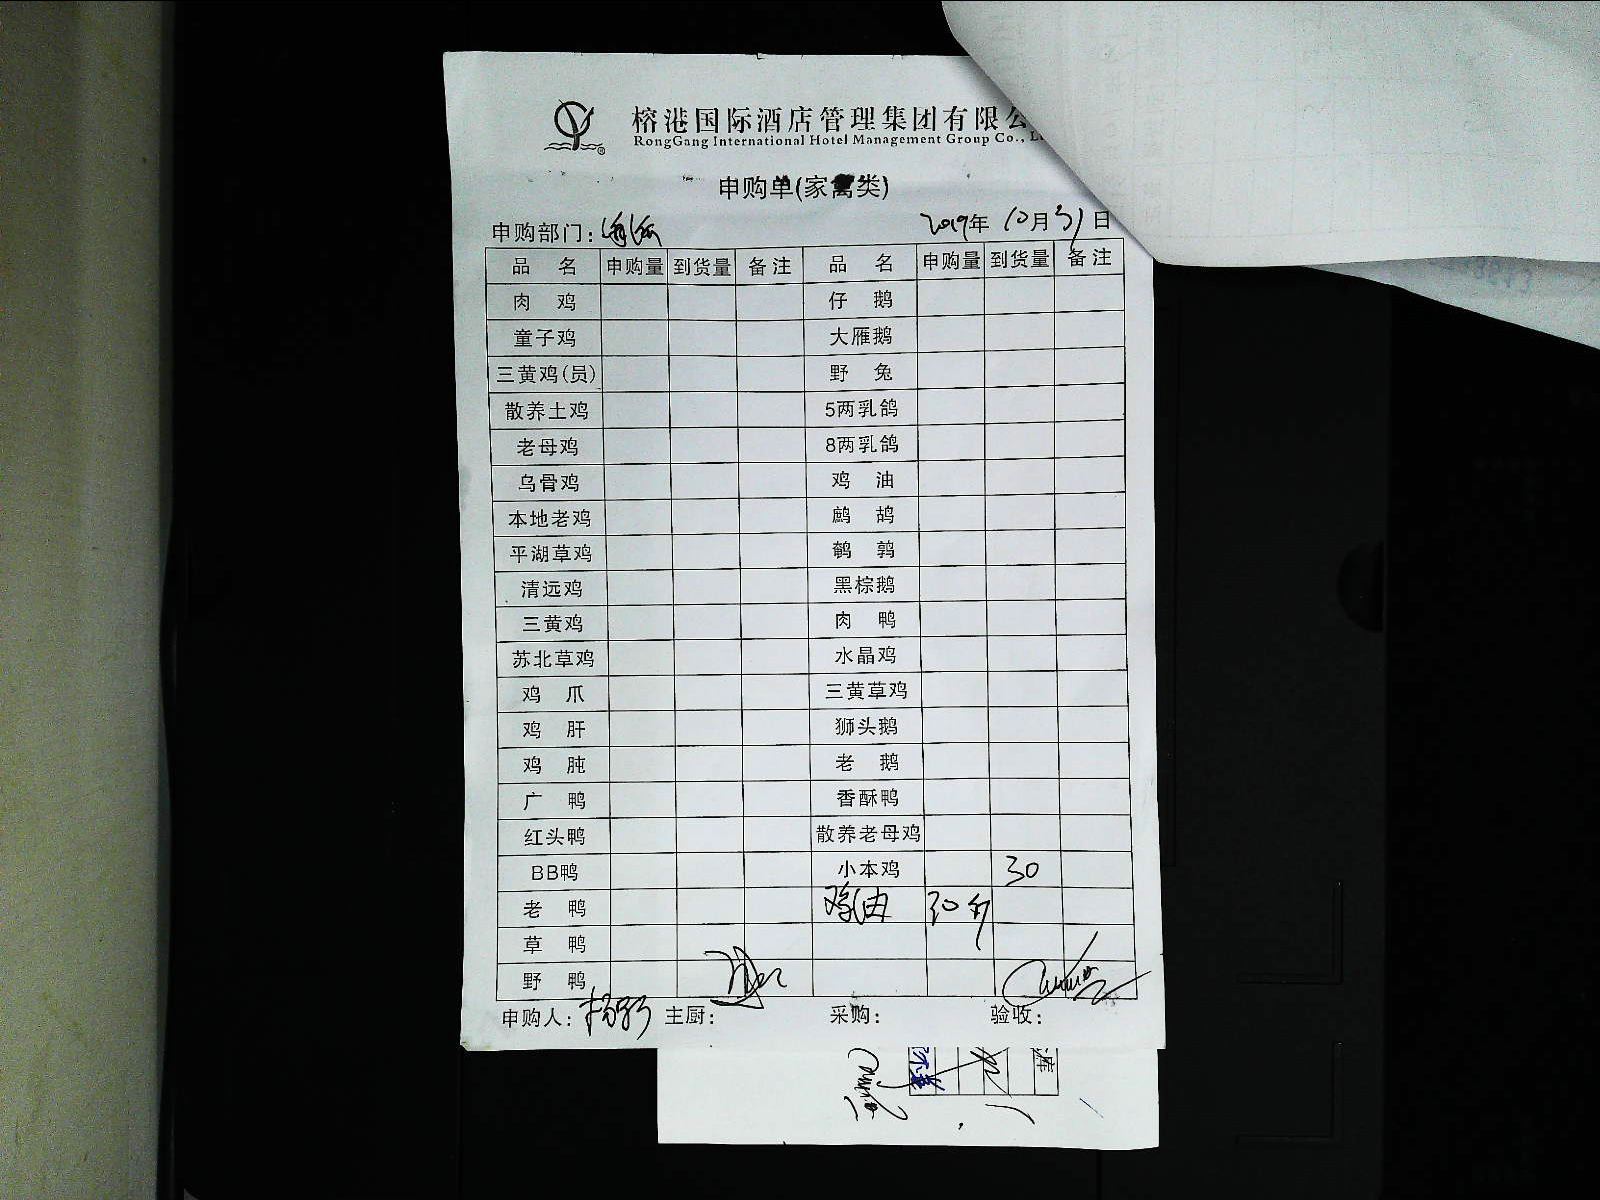 榕港国际酒店管理集团有限公
RongGang International Hotel Management Group Co., L
申购单(家禽类)
申购部门: 2019年 10月31日
品 名 申购量 到货量 备注 品 名 申购量 到货量 备注
肉 鸡 仔 鹅
童子鸡 大雁鹅
三黄鸡(员) 野 兔
散养土鸡 5两乳鸽
老母鸡 8两乳鸽
乌骨鸡 鸡 油
本地老鸡 鹧 鸪
平湖草鸡 鹌 鹑
清远鸡 黑棕鹅
三黄鸡 肉 鸭
苏北草鸡 水晶鸡
鸡 爪 三黄草鸡
鸡 肝 狮头鹅
鸡 肫 老 鹅
广 鸭 香酥鸭
红头鸭 散养老母鸡
BB鸭 小本鸡 30
老 鸭 鸡油 30斤
草 鸭
野 鸭
申购人: 主厨: 采购: 验收:
库